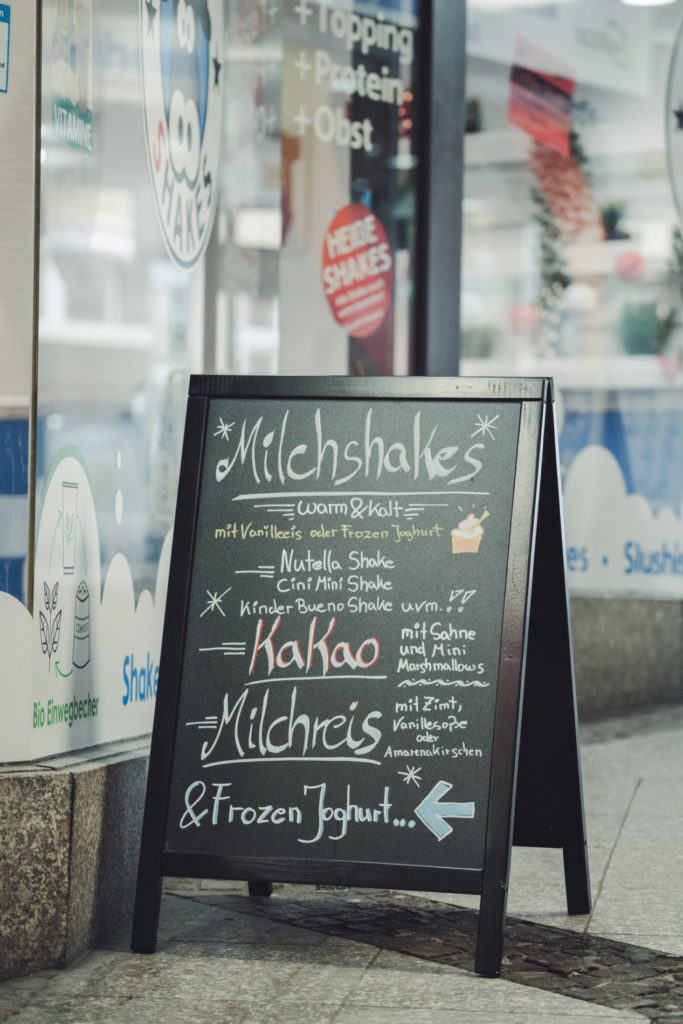 +Topping
+Protein
+Obst
VITAMINE
SHAKES
HEIßE
SHAKES
Milchshakes
warm & kalt
mit Vanilleeis oder Frozen Joghurt
Nutella Shake
Cini Mini Shake
Kinder Bueno Shake uvm.!!
KaKao
mit Sahne
und Mini
Marshmallows
Milchreis
mit Zimt,
Vanillesoße
oder
Amarenakirschen
& Frozen Joghurt...
Bio Einwegbecher
Shake
es • Slushis